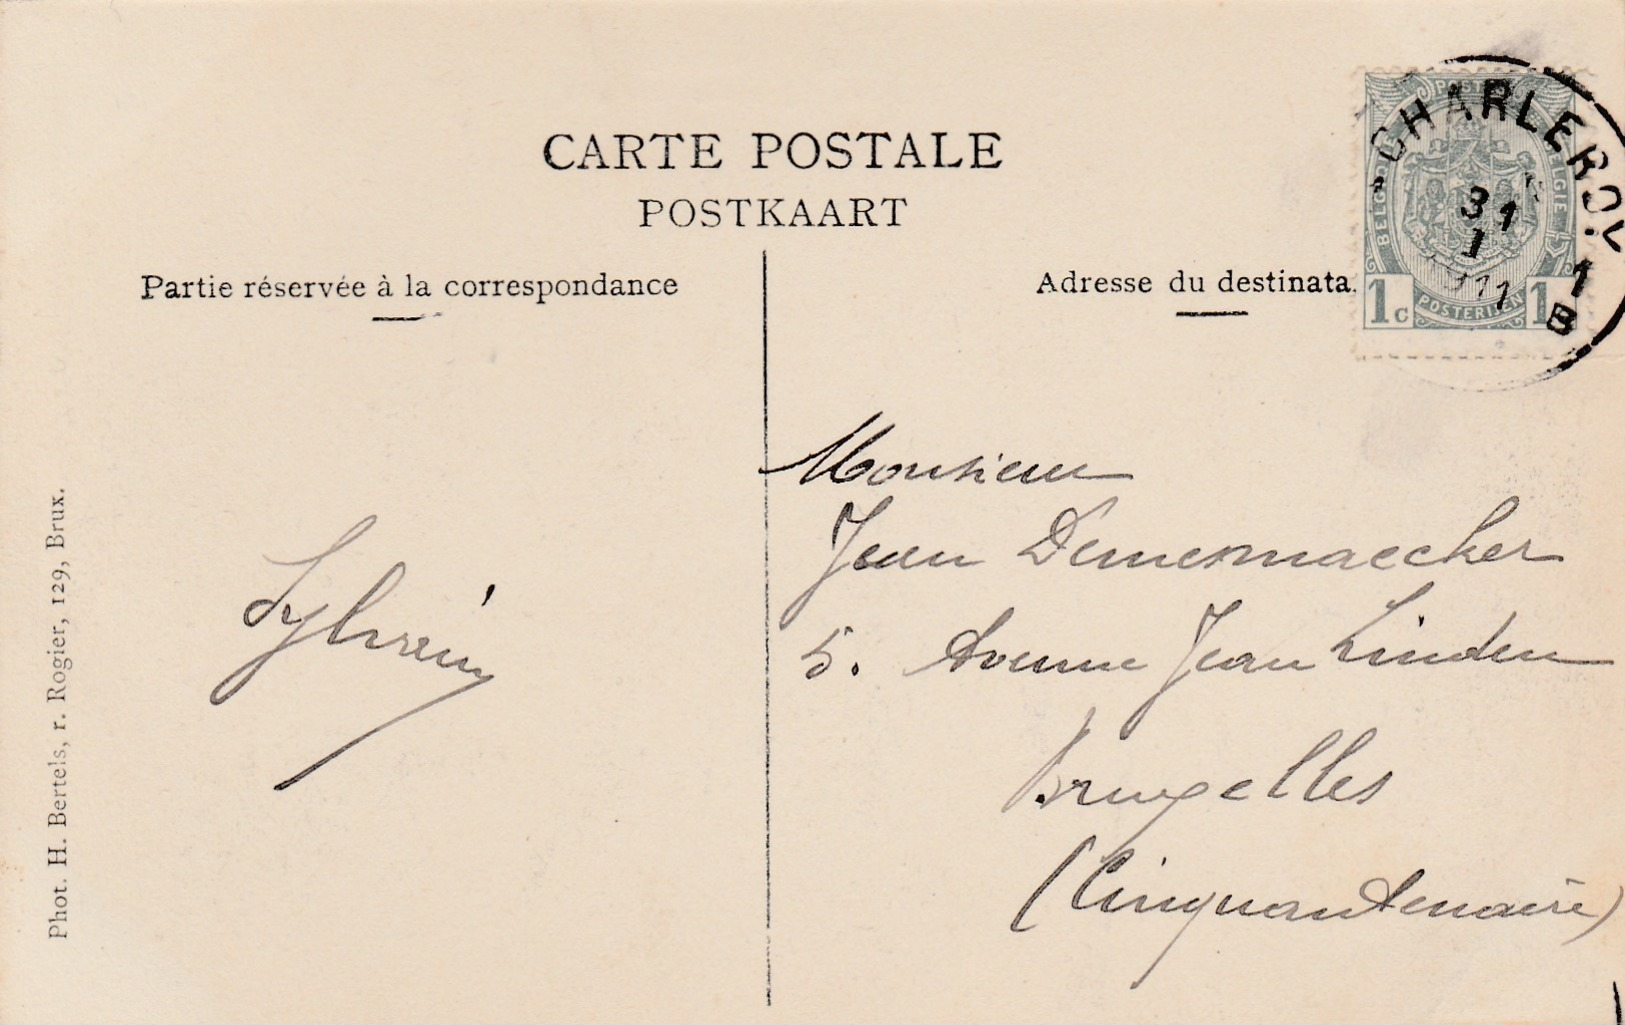 CARTE POSTALE
POSTKAART
Partie réservée à la correspondance
Adresse du destinata
POSTES
BELGIQUE
BELGIE
1c
POSTERIJEN
1
CHARLEROY 1
31
1
1911
B
Monsieur
Jean Demesmaecker
5. Avenue Jean Linden
Bruxelles
(Cinquantenaire)
Sylvain
Phot. H. Bertels, r. Rogier, 129, Brux.